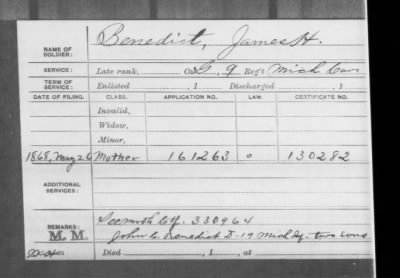 Benedict, James H.
NAME OF SOLDIER:
SERVICE: Late rank, Co. G. 9 Reg't Mich Cav
TERM OF SERVICE: Enlisted , 1 Discharged , 1
DATE OF FILING. CLASS. APPLICATION NO. LAW. CERTIFICATE NO.
Invalid,
Widow,
Minor,
1868, May 26 Mother 161263 o 130282
ADDITIONAL SERVICES:
REMARKS: See moth Ctf. 330964
M. M. John C. Benedict D-19 Mich Inf - two sons
Died , 1 , at